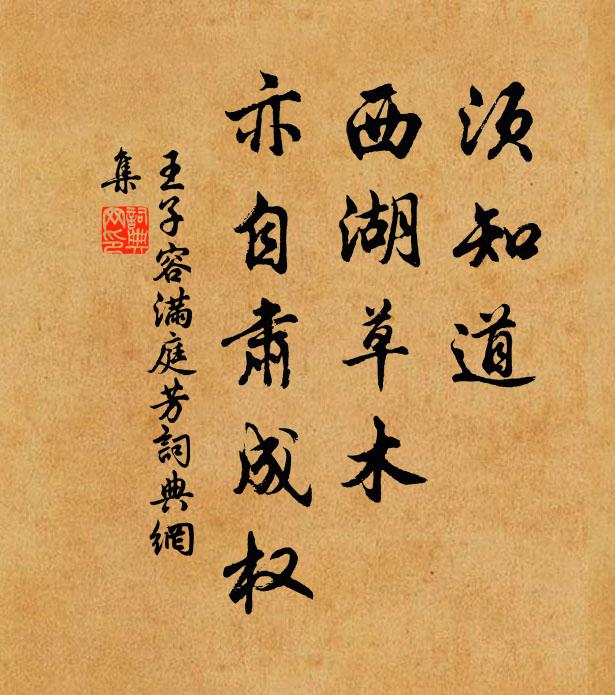 须知道
西湖草木
亦自肃成权
王子容满庭芳詞典網
集
詞典网印